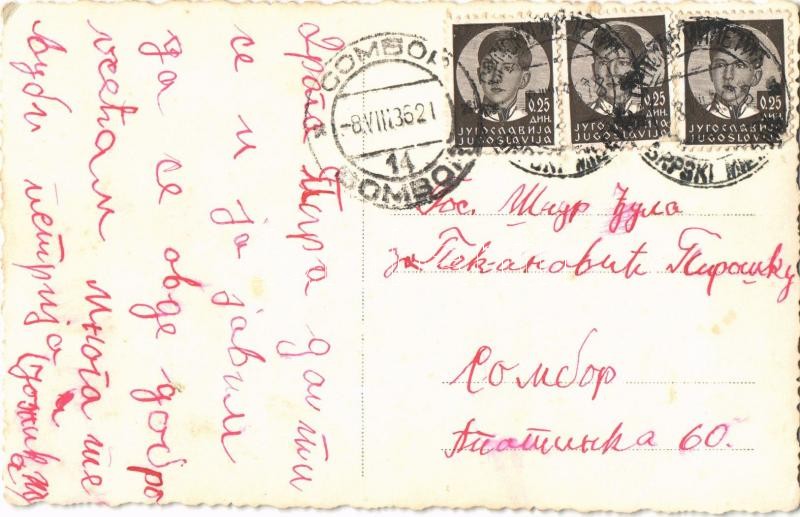 Драга Пира да ти
се и ја јавим
да се овде добро
осећам многа те
љуби петрија
СОМБОР
-8.VIII.36 21
14
СОМБОР
0.25
ДИН.
ЈУГОСЛАВИЈА
JUGOSLAVIJA
0.25
ДИН.
ЈУГОСЛАВИЈА
JUGOSLAVIJA
0.25
ДИН.
ЈУГОСЛАВИЈА
JUGOSLAVIJA
SRPSKI
Гос. Шнур Јула
за Пекановић Пирошку
Сомбор
Апатинка 60.